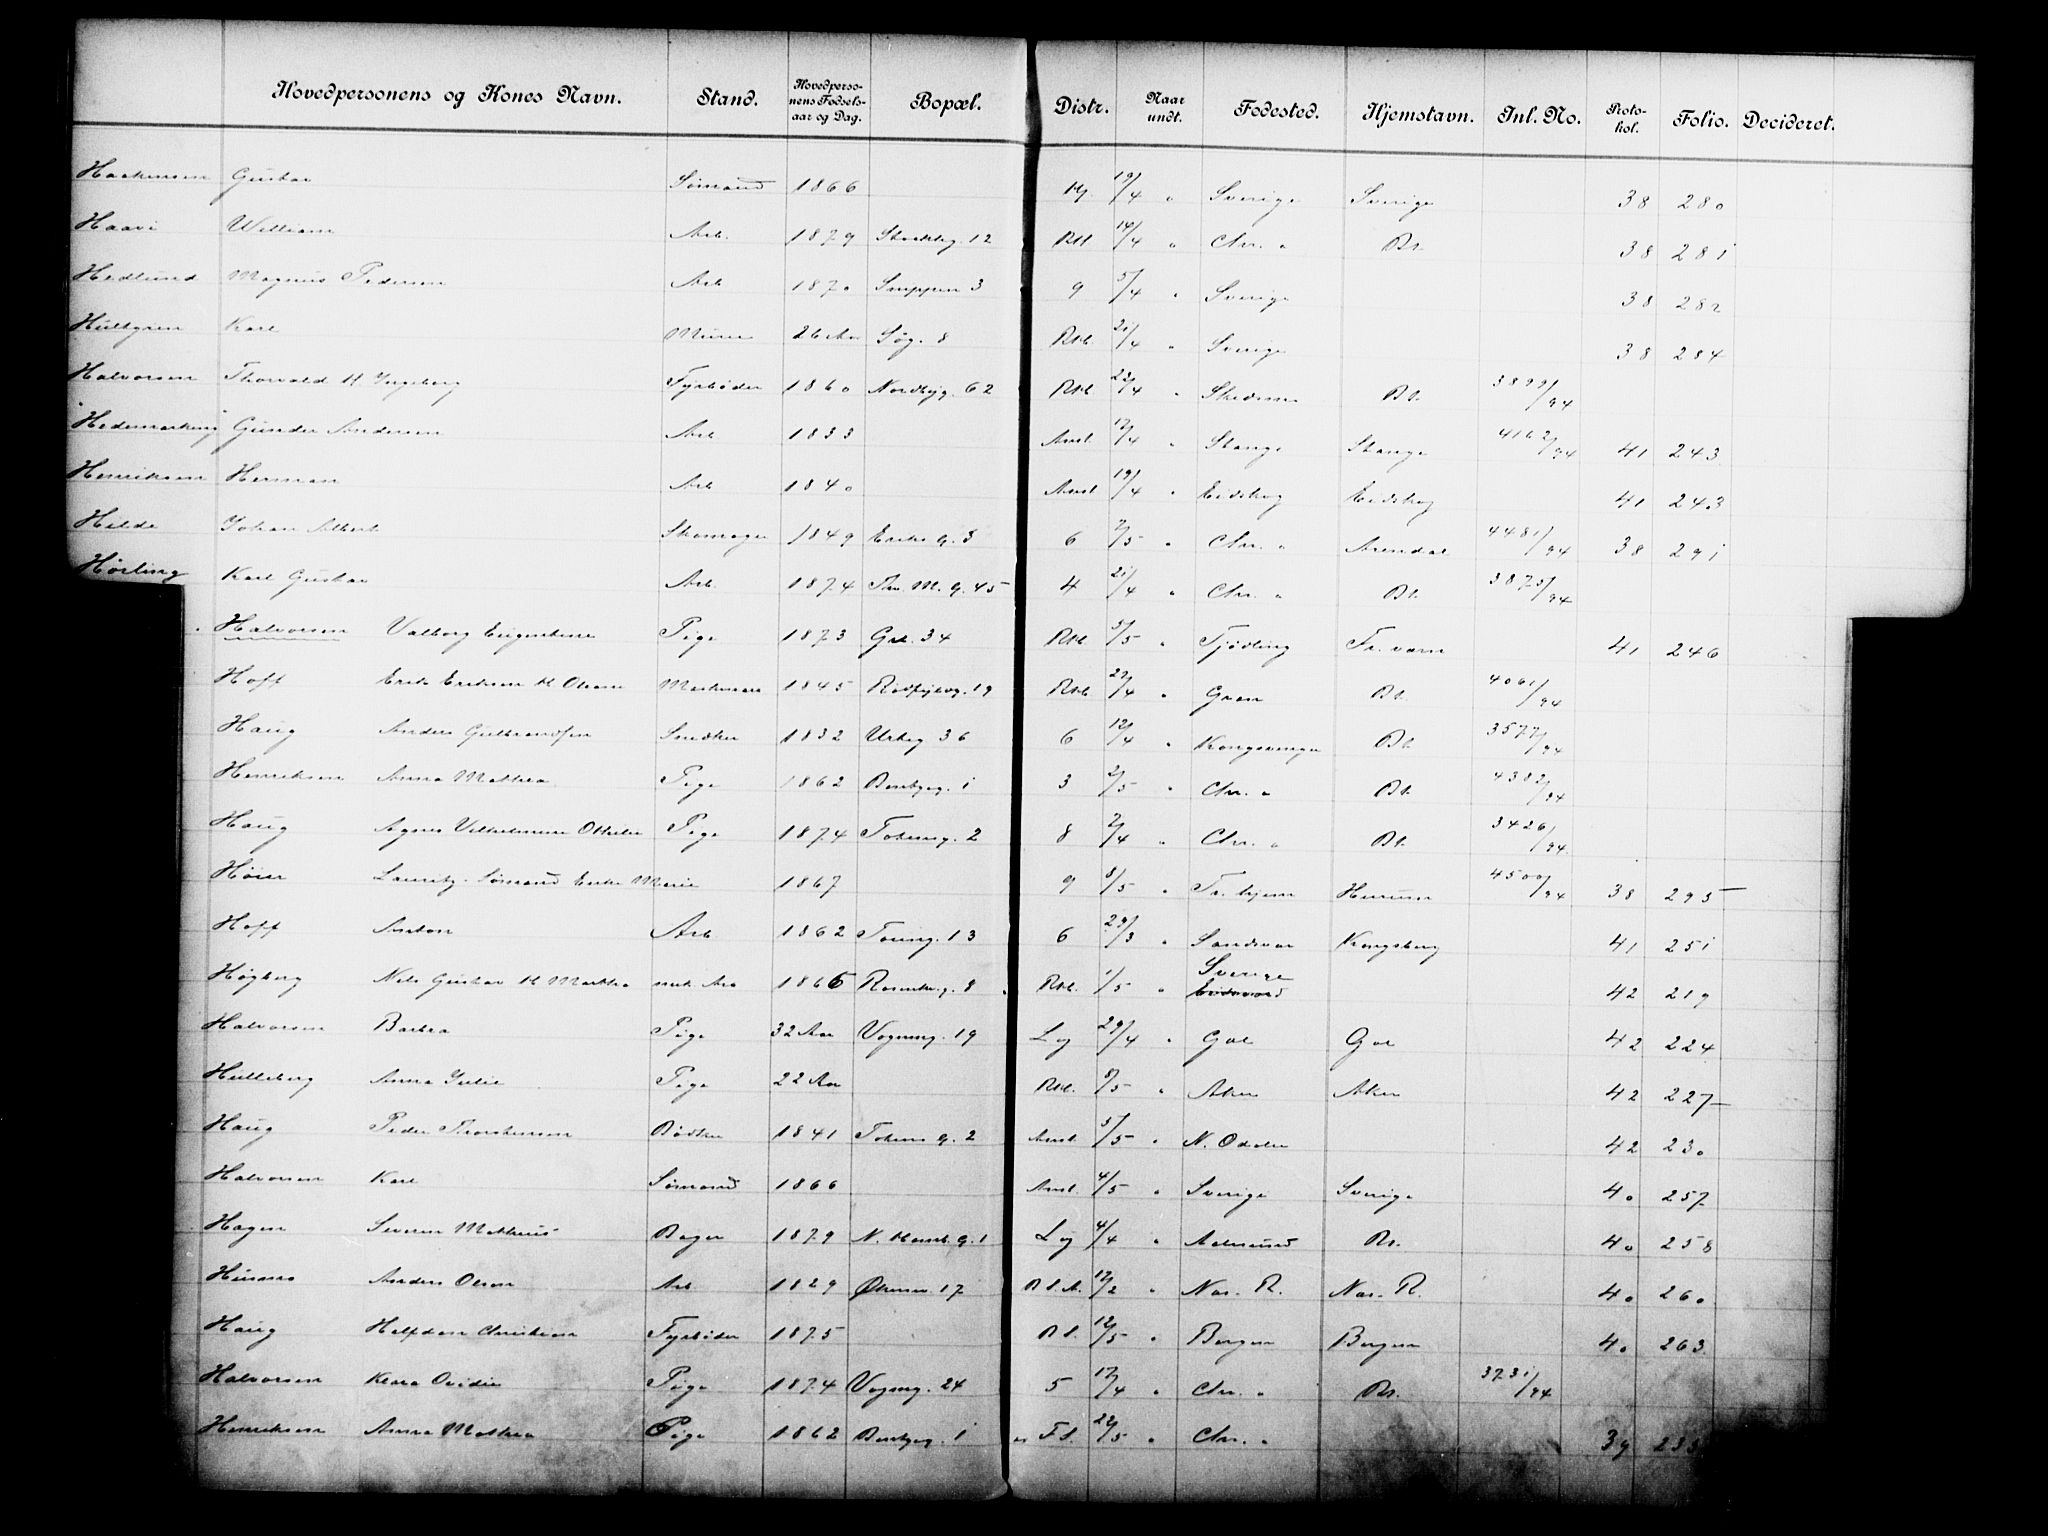 Hovedpersonens og Kones Navn. Stand. Hovedpersonens Fødselsaar og Dag. Bopæl. Distr. Naar undt. Fødested. Hjemstavn. Inl. No. Protokol. Folio. Decideret.
Gustav Sømand 1866 19/4 " Sverige Sverige 38 280
Haavi William Arb. 1879 12 14/4 " Chr. " Bl. 38 281
Hedlund Magnus Pedersen Arb 1870 3 9 5/4 " Sverige 38 282
Hultgren Karl Murer 26 Aar Søg. 8 Rbl. 21/4 " Sverige 38 284
Halvorsen Thorvald H Ingeborg Fyrbøder 1860 Nordbyg. 62 Rbl 23/4 " Skedsmo Bl. 3899/94
Hedemarking Gunder Andersen Arb 1833 Anst. 17/4 " Stange Stange 4162/94 41 243
Henriksen Herman Arb 1840 Anst 19/4 " Eidskog Eidskog 41 243
Hilde Johan Albert Skomager 1849 Eriks g. 3 6 7/5 " Chr. " Arendal 4481/94 38 291
Hørling Karl Gustav Arb. 1874 Thv. M. g. 45 4 21/4 " Chr. " Bl. 3875/94
Halvorsen Valborg Pige 1873 Grl. 34 Rbl 5/5 " Tjødling Fr. værn 41 246
Hoff Erik Eriksen H Oleane 1845 19 Rbl. 27/4 " Gran Bl. 4061/94
Haug Anders Gulbrandsen Snedker 1832 Urteg 36 6 12/4 " Kongsvinger Bl. 3577/94
Henriksen Anna Mathea Pige 1862 Benbyeg. 1 3 2/5 " Chr. " Bl. 4382/94
Haug Agnes Vilhelmine Othilie Pige 1874 Tokensg. 2 8 7/4 " Chr. " Bl. 3426/94
Høier Lauritz. Sømand Enke Marie 1867 9 8/5 " Tr. hjem Hurum 4500/94 38 295
Hoff Anton Arb 1862 13 6 29/3 " Sandsvær Kongsberg 41 251
Høgberg Nils Gustav H Marthea 1866 Rosenkrg. 8 Rbl. 1/5 " Sverige 42 219
Halvorsen Barbra Pige 32 Aar Vognmg. 19 Lög 29/4 " Gol Gol 42 224
Hulleberg Anna Julie Pige 22 Aar Rbl. 8/5 " Aker Aker 42 227
Haug Peder Thorstensen Bødker 1841 Tokens g. 2 Anst. 5/5 " N. Odalen 42 230
Halvorsen Karl Sømand 1866 Anst. 4/5 " Sverige Sverige 40 257
Hagen Severin Mathæus Bager 1879 1 Lög 4/4 " Aalesund Bl. 40 258
Anders Olsen Arb. 1829 17 12/2 " Nes. R. Nes. R. 40 260
Haug Halfdan Christian Fyrbøder 1875 Bl. 12/5 " Bergen Bergen 40 263
Halvorsen Klara Ovidie Pige 1874 Vognmg. 24 5 17/4 " Chr. " Bl. 3731/94
Henriksen Anna Mathea Pige 1862 Benbyeg. 1 Fl. 22/5 " Chr. " 39